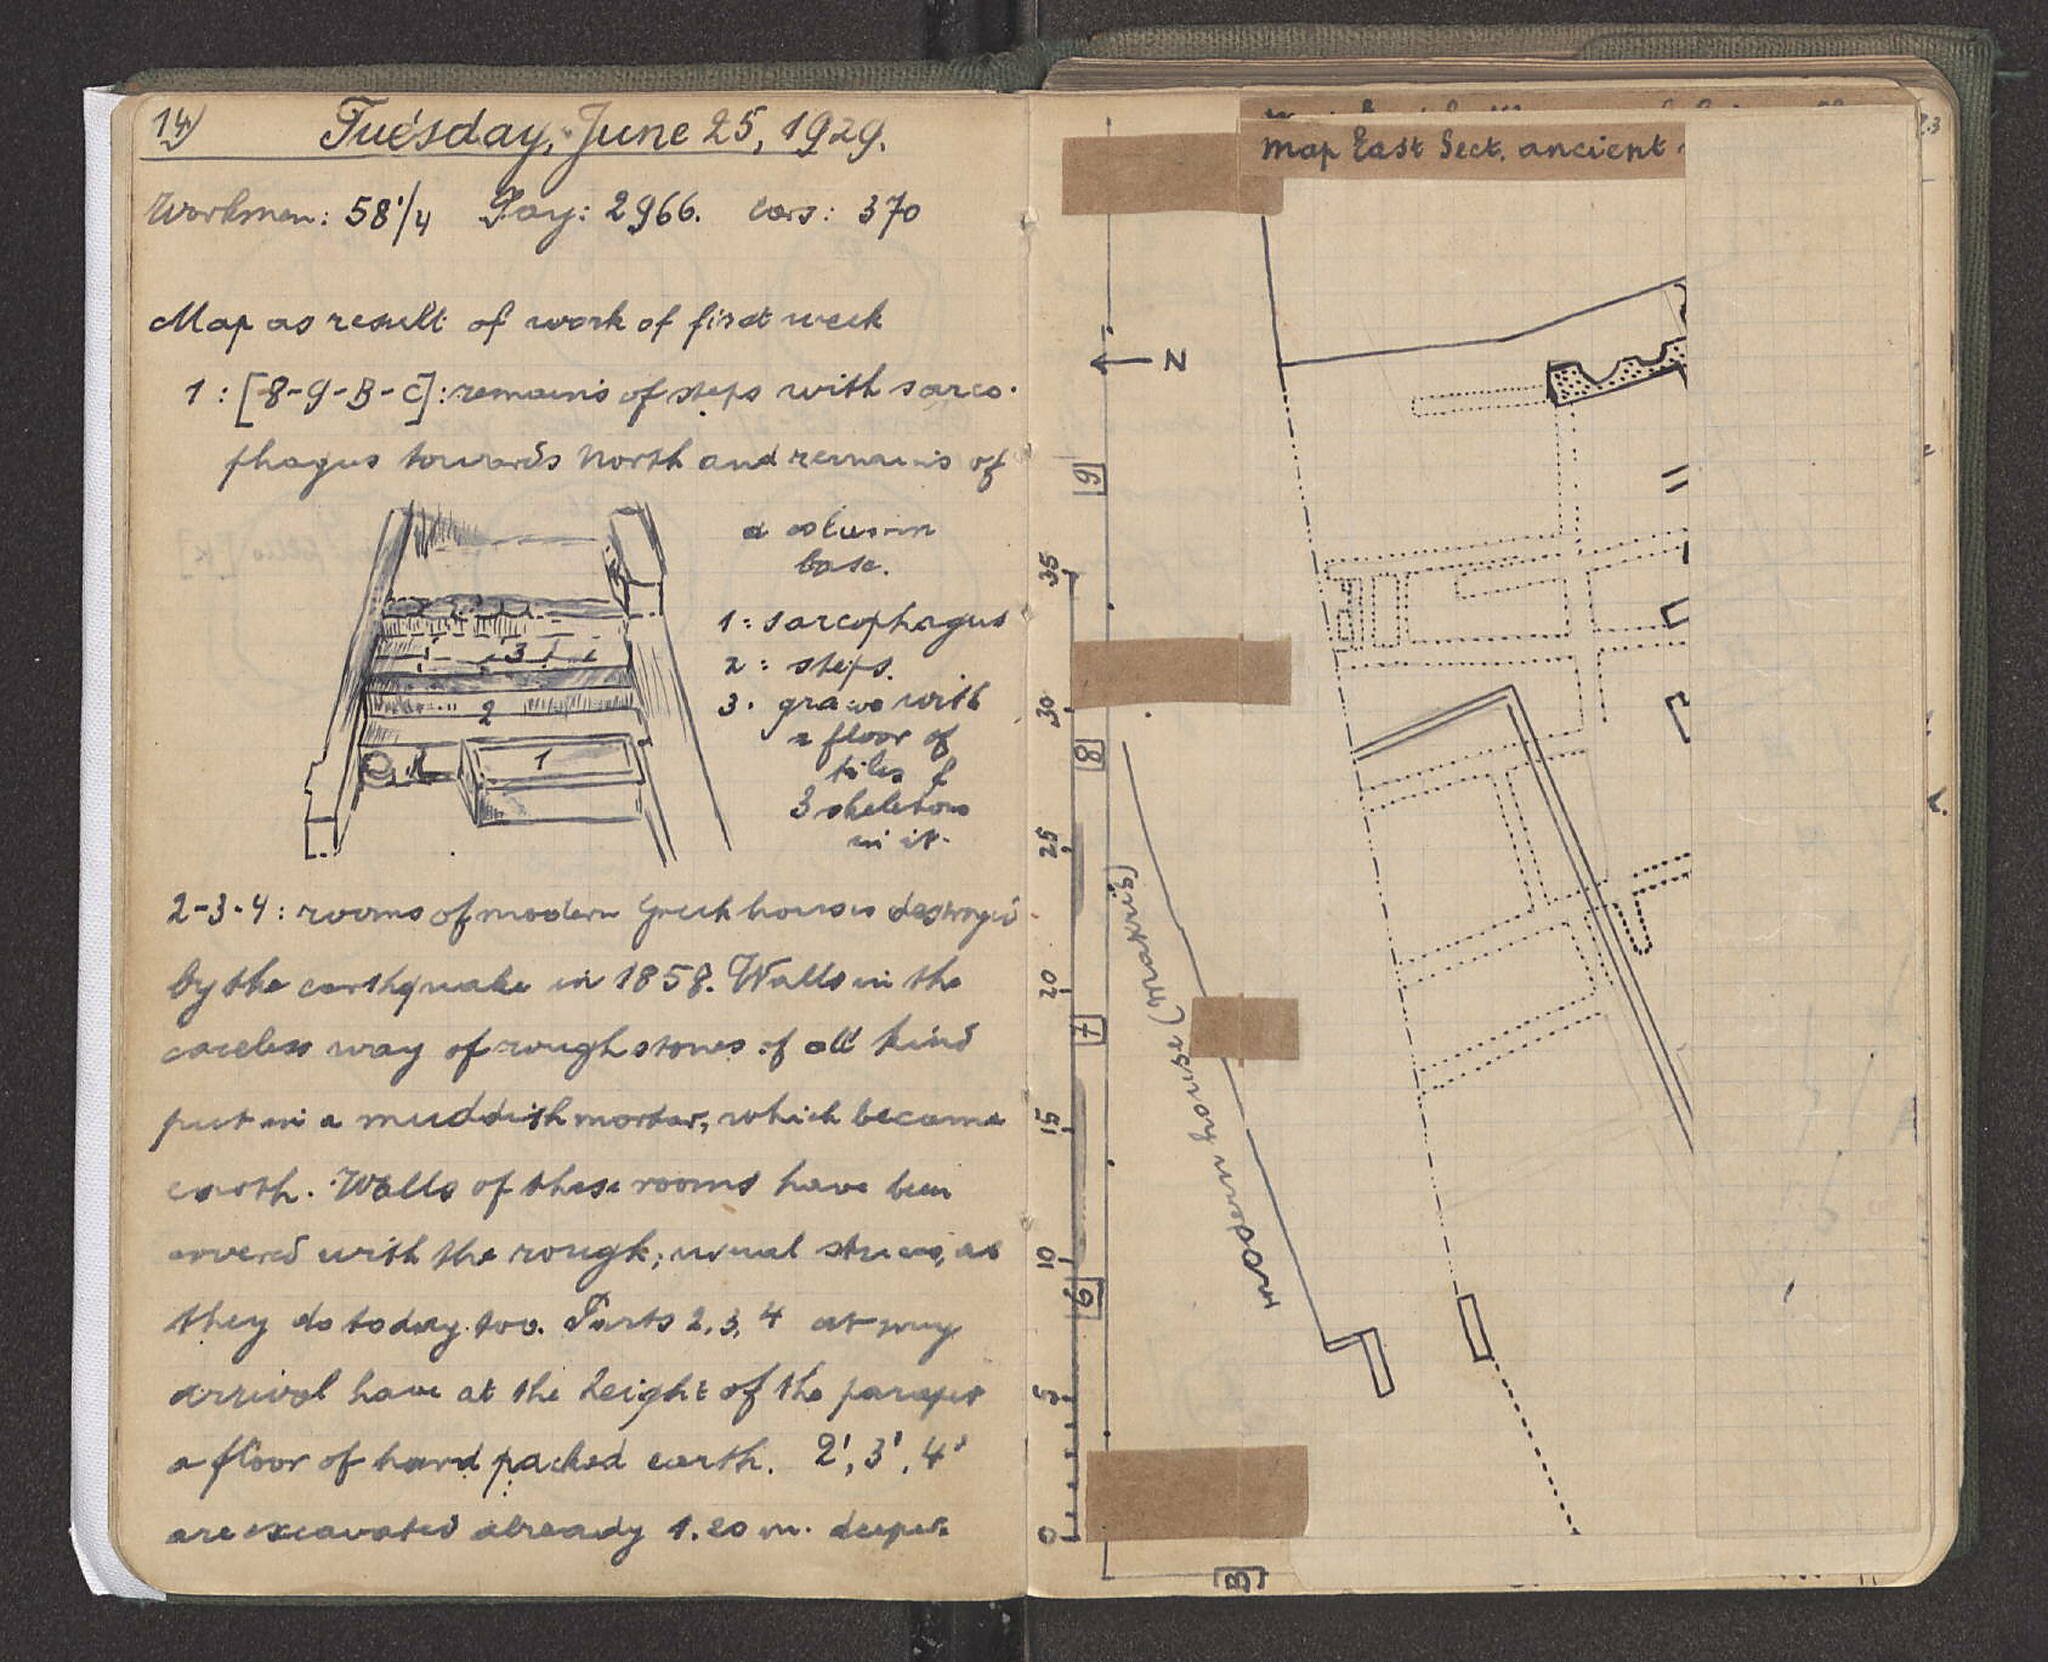 14)
Tuesday, June 25, 1929.
Workmen: 58 1/4 Pay: 2966. cars: 370
Map as result of work of first week
1: [8-9-B-C]: remains of steps with sarco-
phagus towards North and remains of
a column
base.
1: sarcophagus
2: steps.
3. grave with
a floor of
tiles &
3 skeletons
in it.
3
2
1
2-3-4: rooms of modern Greek houses destroyed
by the earthquake in 1858. Walls in the
careless way of rough stones of all kind
put in a muddish mortar, which became
earth. Walls of these rooms have been
covered with the rough, usual stucco, as
they do today too. Parts 2, 3, 4 at my
arrival have at the height of the parapet
a floor of hard packed earth. 2', 3', 4'
are excavated already 1.20 m. deeper.
Map East Sect. ancient
N
9
35
30
8
25
20
7
15
10
6
5
0
[B]
modern house (Makris)
23